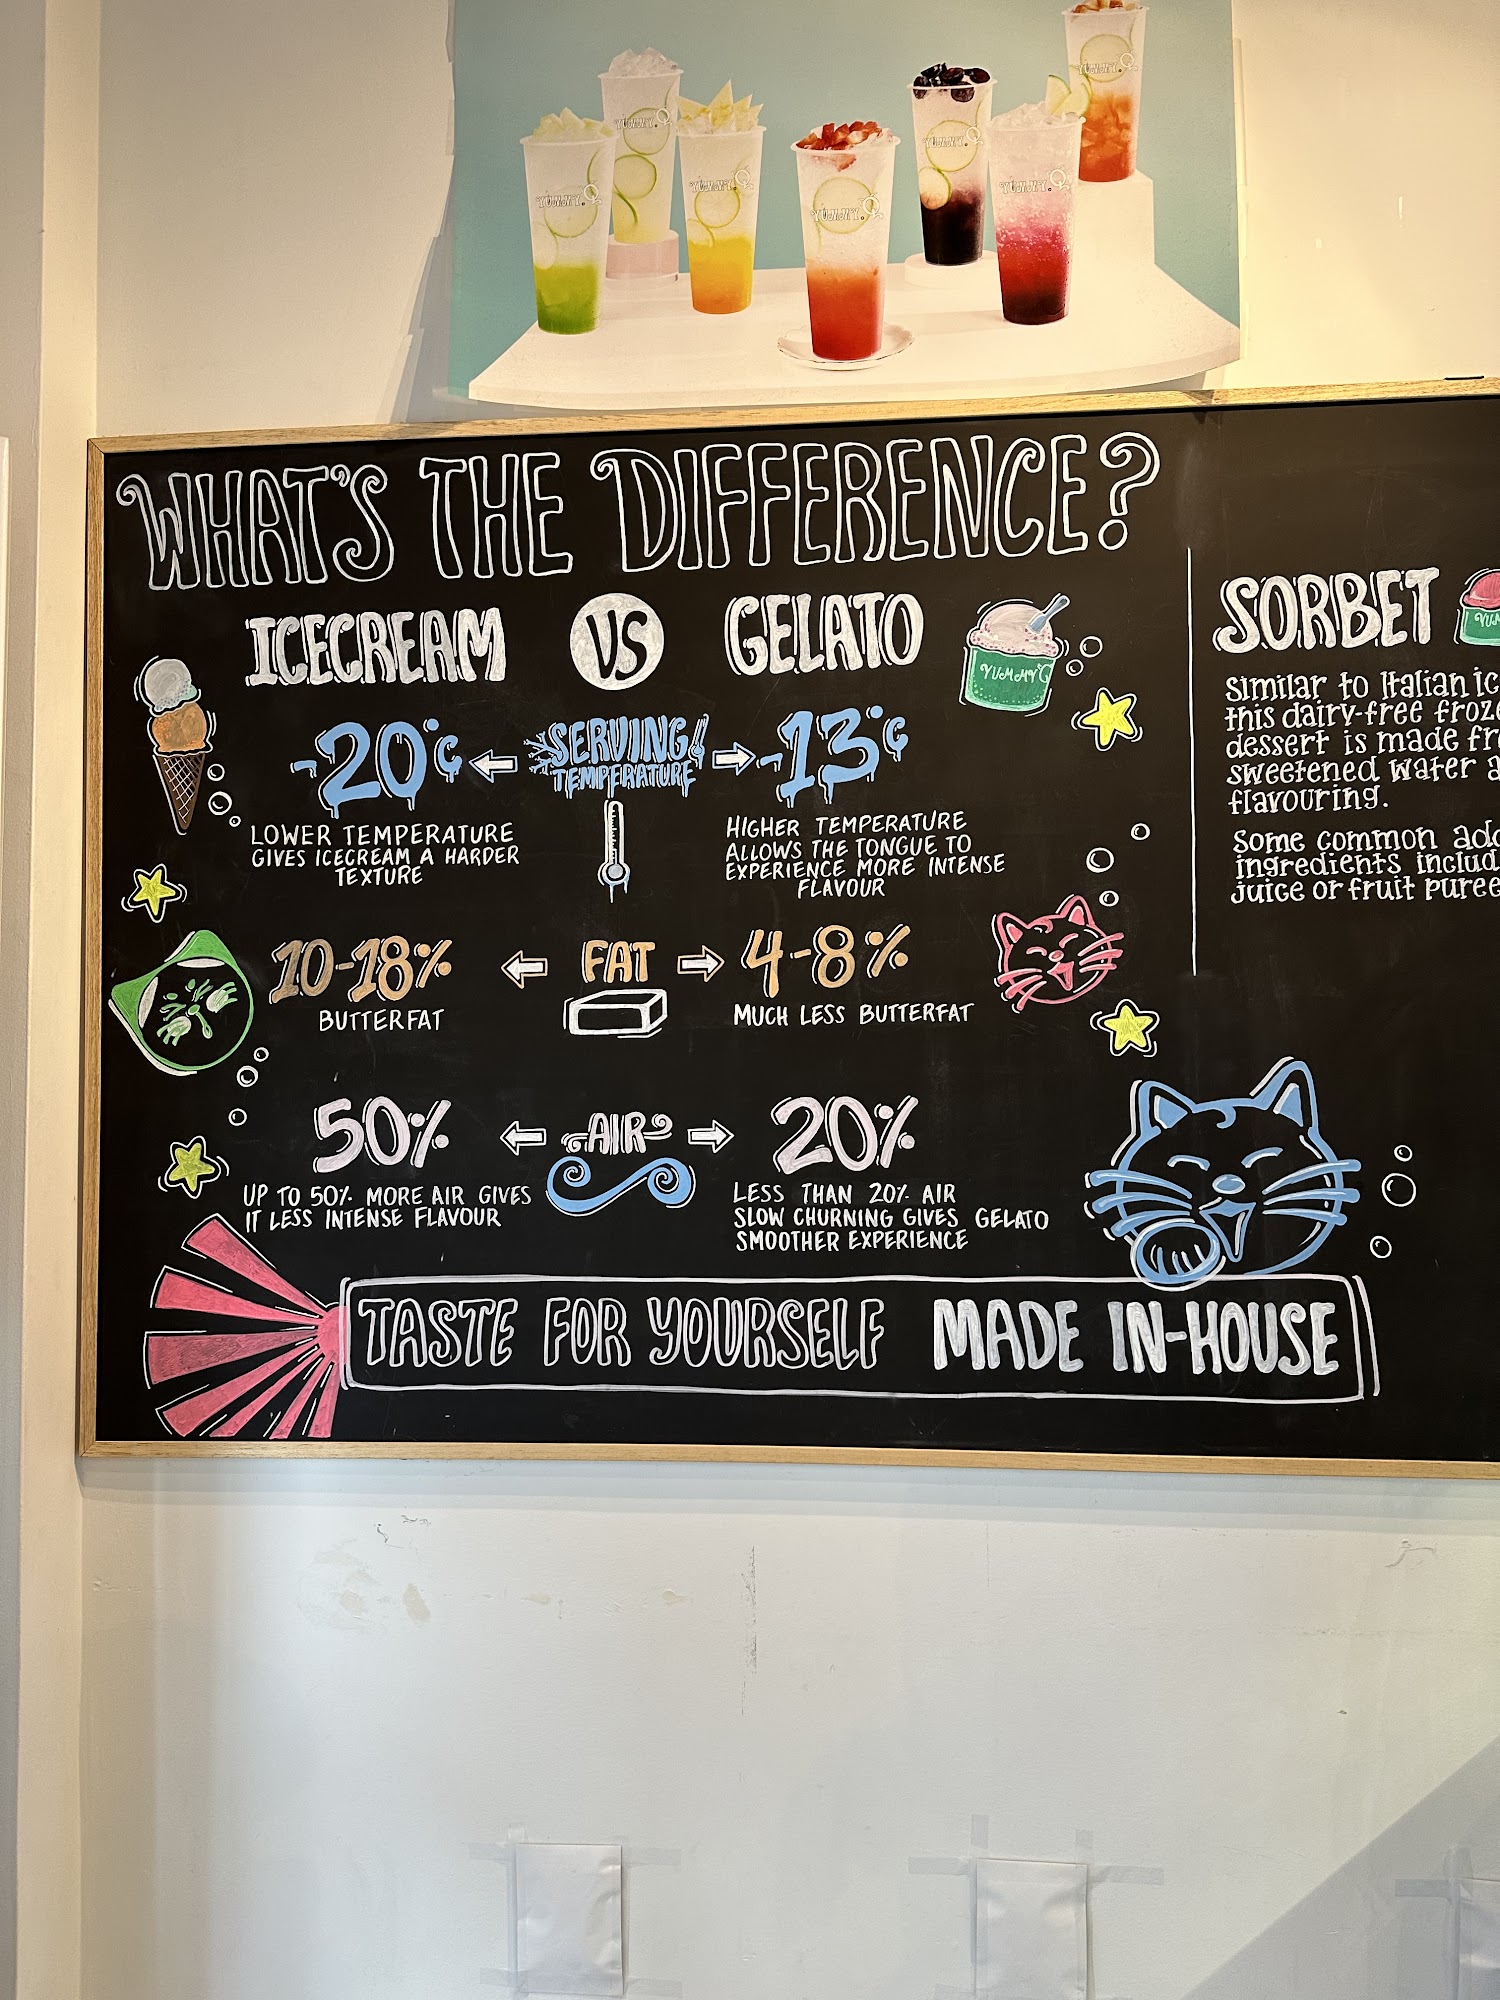 YUMMY.Q
YUMMY.Q
YUMMY.Q
YUMMY.Q
YUMMY.Q
YUMMY.Q
YUMMY.Q
WHAT'S THE DIFFERENCE?
ICECREAM VS GELATO
YUMMY
-20°C SERVING TEMPERATURE -13°C
LOWER TEMPERATURE
GIVES ICECREAM A HARDER
TEXTURE
HIGHER TEMPERATURE
ALLOWS THE TONGUE TO
EXPERIENCE MORE INTENSE
FLAVOUR
10-18% FAT 4-8%
BUTTERFAT
MUCH LESS BUTTERFAT
50% AIR 20%
UP TO 50% MORE AIR GIVES
IT LESS INTENSE FLAVOUR
LESS THAN 20% AIR
SLOW CHURNING GIVES GELATO
SMOOTHER EXPERIENCE
TASTE FOR YOURSELF MADE IN-HOUSE
SORBET
Similar to Italian
this dairy-free
dessert is made
sweetened water
flavouring.
Some common
ingredients
juice or fruit